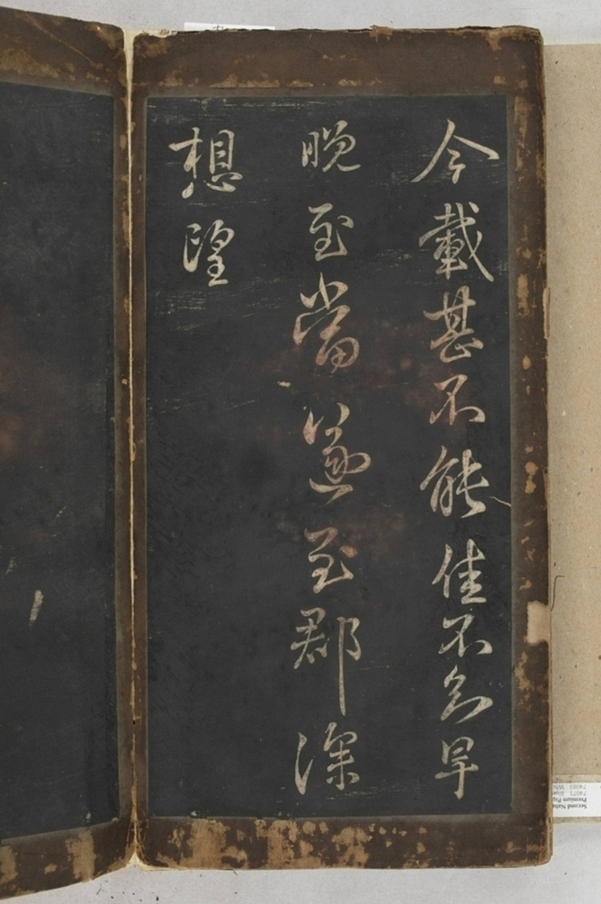 今載甚不能佳不知早
晚至當遂至郡深
想望